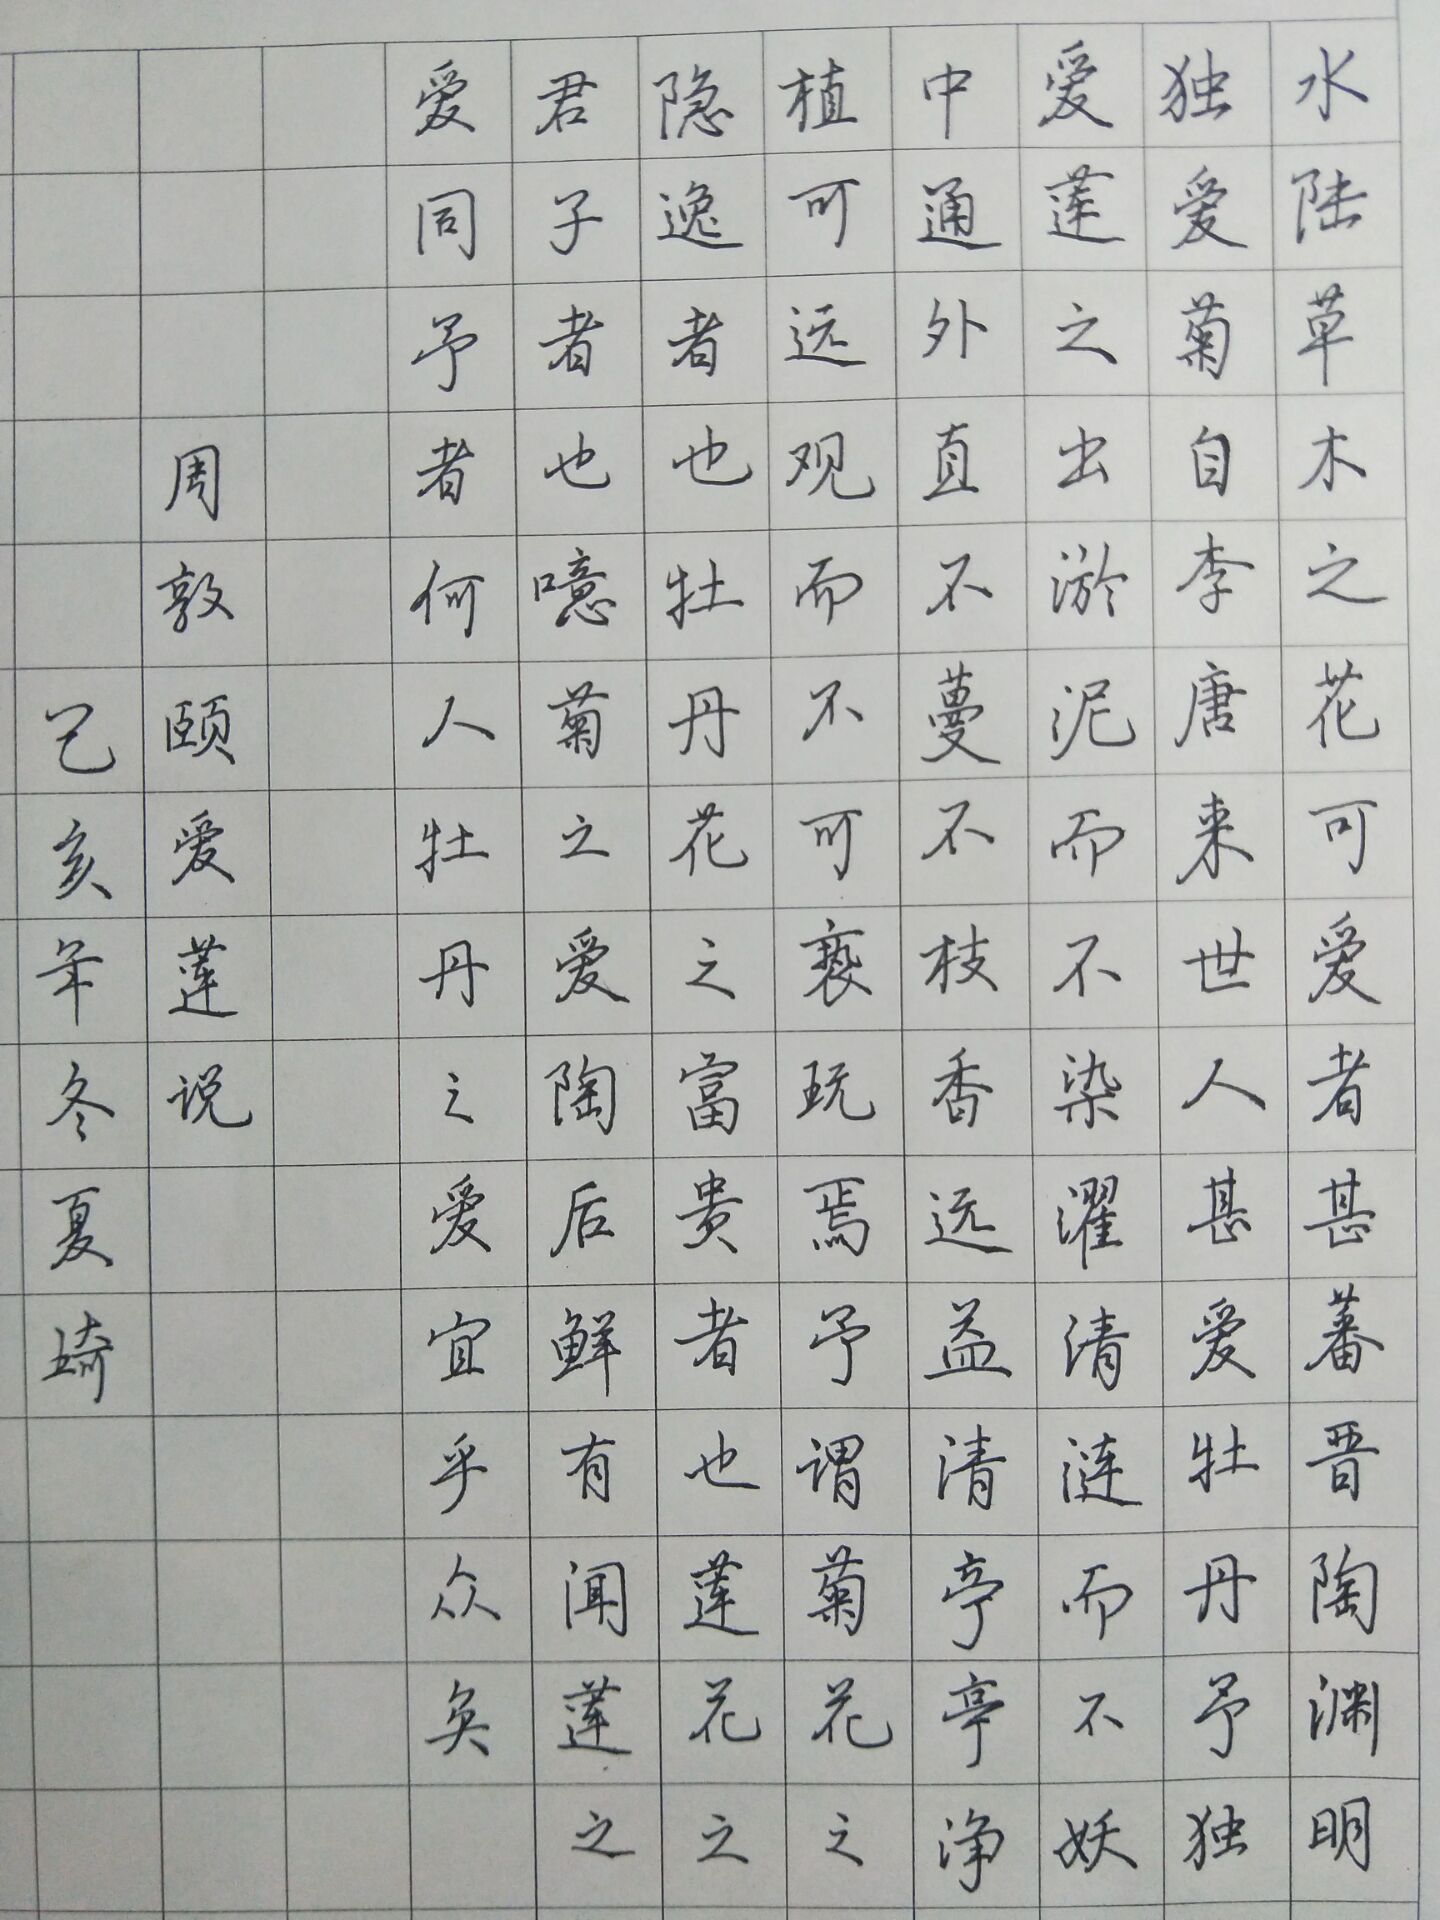 水陆草木之花可爱者甚蕃晋陶渊明
独爱菊自李唐来世人甚爱牡丹予独
爱莲之出淤泥而不染濯清涟而不妖
中通外直不蔓不枝香远益清亭亭净
植可远观而不可亵玩焉予谓菊花之
隐逸者也牡丹花之富贵者也莲花之
君子者也噫菊之爱陶后鲜有闻莲之
爱同予者何人牡丹之爱宜乎众矣
周敦颐爱莲说
己亥年冬夏琦